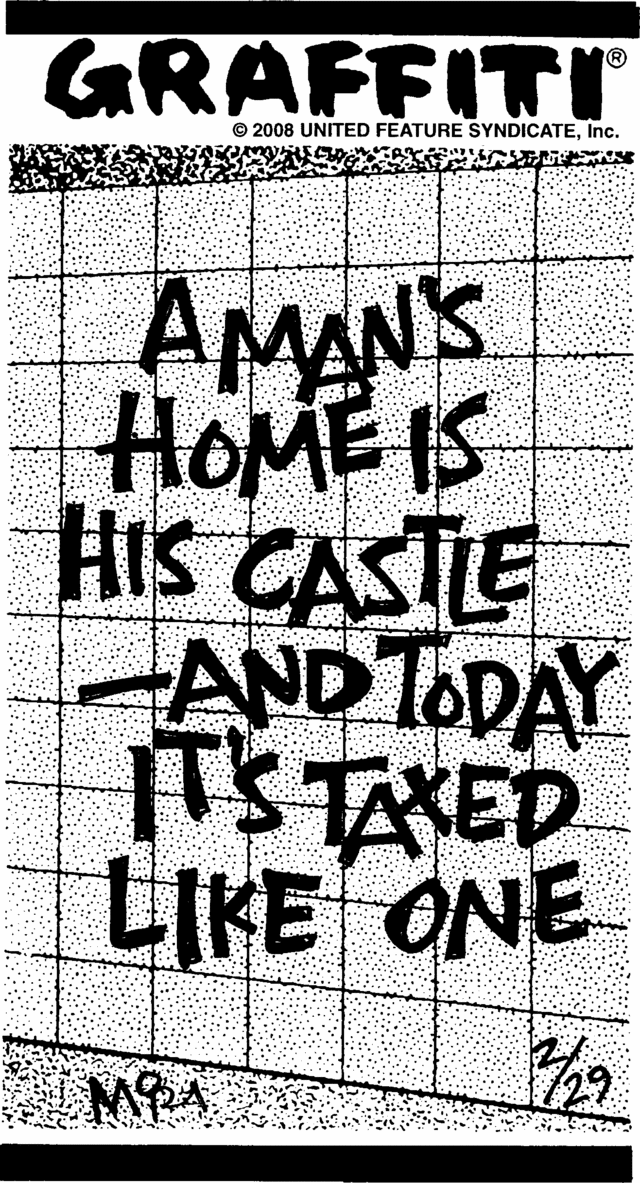 GRAFFITI®
© 2008 UNITED FEATURE SYNDICATE, Inc.
A MAN'S
HOME IS
HIS CASTLE
—AND TODAY
IT'S TAXED
LIKE ONE
2/29